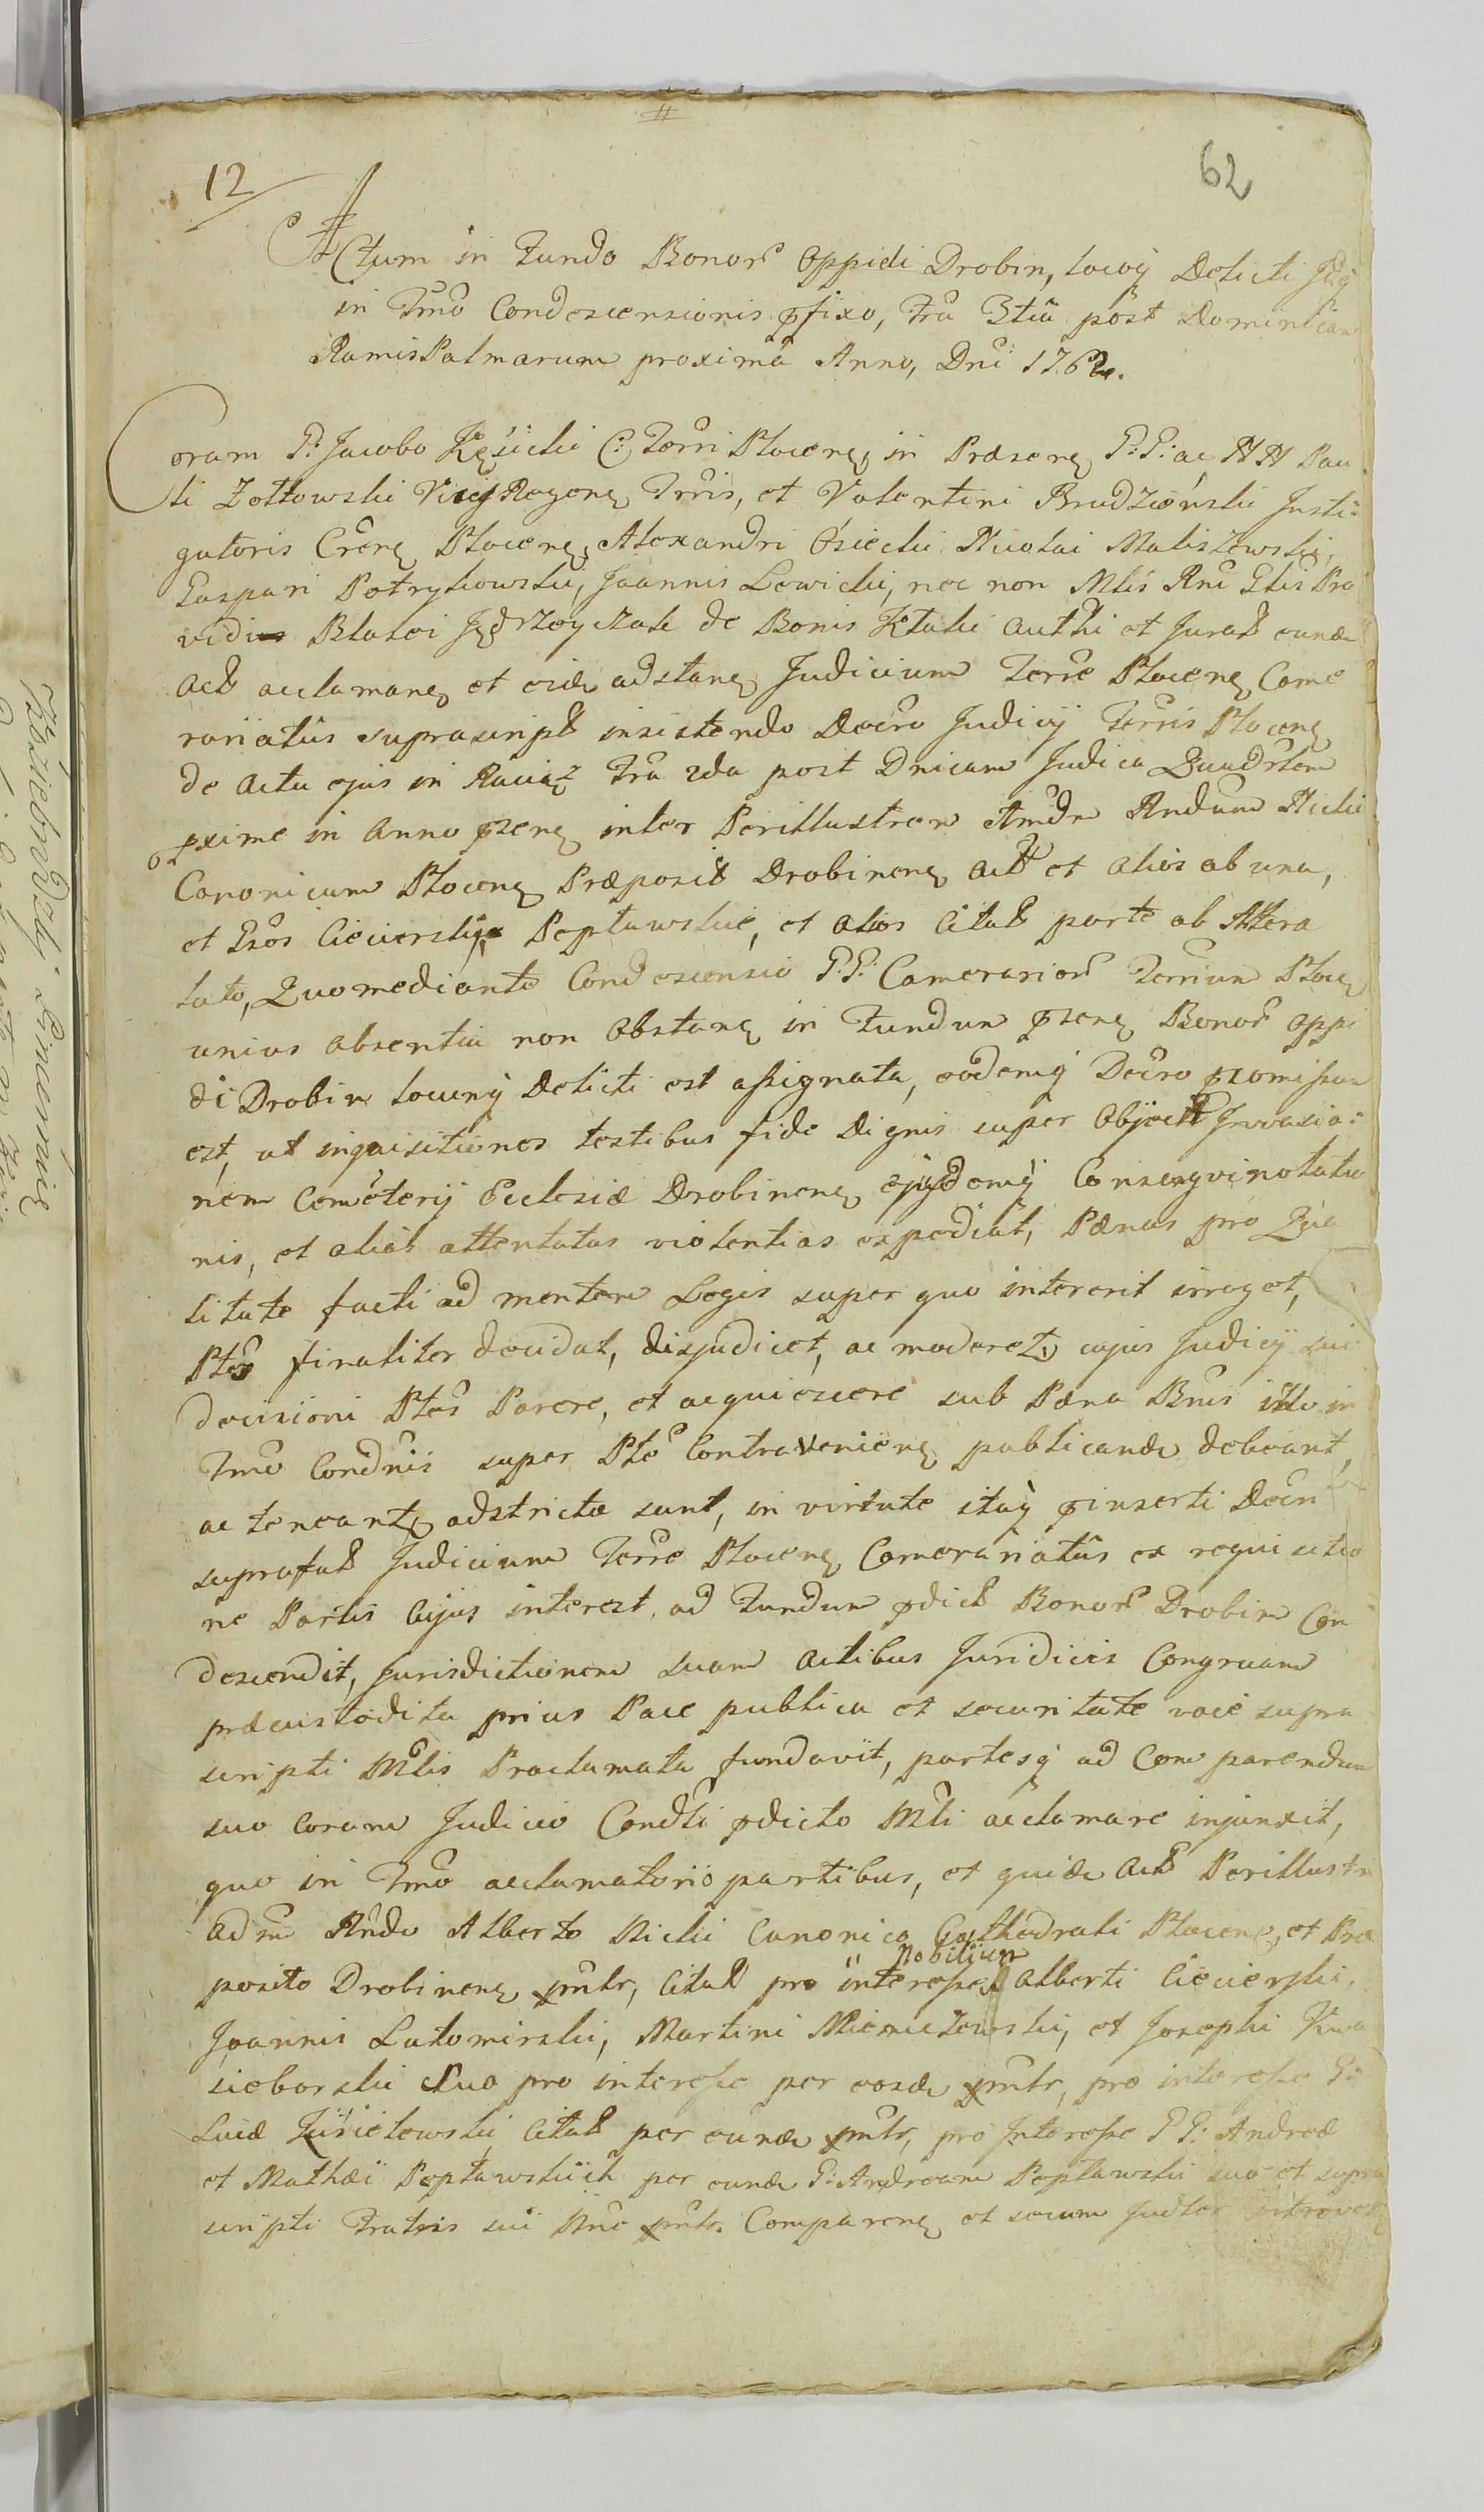 12
62
Actum in Fundo Bonor Oppidi Drobin, locoq Delicti
in Tmo Condescensionis pfixo, Fra 3tia post Dominicam
Ramis Palmarum proxima Anno, Dni 1762.
Coram P: Jacobo Kęsicki C: Terri Plocen, in Præsen P:P: ac NN Pau
li Zołtowski Vice Regen Trris, et Valentini Brudzieński Insti:
gatoris Cren Plocen, Alexandri Osiecki Nicolai Maliszewski,
Gaspari Petrykowski, Joannis Lewicki, nec non Mlis Rni Glis Pro
vidi Blasei Jędrzeyczak de Bonis Ktuki authi et Jurat eund
act acclaman et eid adstan Judicium Terre Plocen Came
rariatûs suprascript insistendo Decro Judicij Terris Plocen
de actu ejus in Raciąż Fra 2da post Dnicam Judica Quadrlem
pxime in Anno psen inter Perillustrem Amdm Rndum Nicki
Canonicum Plocen Præposit Drobinen Act et alios ab una,
et Gsos Ciecierskie Popławskie, et alios Citat parte ab Altera
lato, Quo mediante Condescensio P:P: Camerarior Terrium Ploce
unius absentia non obstan in Fundum psen Bonor Oppi
di Drobin locumq Delicti est assignata, eodemq Decro promissum
est, ut inquisitiones testibus fide dignis super Object Invasio:
nem Cemeterij Ecclesiæ Drobinen ejusdemq Consangvinolatio
nis, et aliàs attentatas violentias expediat, Pænas pro Qua
litate facti ad mentem Legis super quo intererit irroget,
Ptes finaliter decidat, disjudicet, ac moderet, cujus Judicij sui
decisioni Ptes Parere, et acquiescere sub Pæna Bnis illo in
Tmo Condnis super Pte Contravenien publicand debeant,
ac teneant, adstrictæ sunt, in virtute itaq pinserti Decri
suprafat Judicium Terre Plocen Camerariatûs ex requisitio
ne Partis Cujus interest, ad Fundum pdict Bonor Drobin Con
descendit, Jurisdictionem suam actibus Juridicis Congruam
præcustodita prius Pace publica et securitate voce supra
scripti Mlis Proclamata fundavit, partesq ad Comparendum
suo coram Judicio Condti pdicto Mli acclamare injunxit,
quo in Tmo acclamatorio partibus, et quid Act Perillustri
adm Rndo Alberto Nicki Canonico Cathedrali Plocen, et Præ
posito Drobinen pntr, Citat pro interesse Nobilium Alberti Ciecierski,
Joannis Lutomirski, Martini Mieszczewski, et Josephi Kwa
sieborski suo pro interesse per eosd pntr, pro interesse G:
Lucæ Kisielewski Citat per eund pntr, pro Interesse P P: Andreæ
et Mathæi Popławskich per eund P: Andream Popławski suo et supra
scripti Fratris sui Nne pntr. Comparen et secum Judter